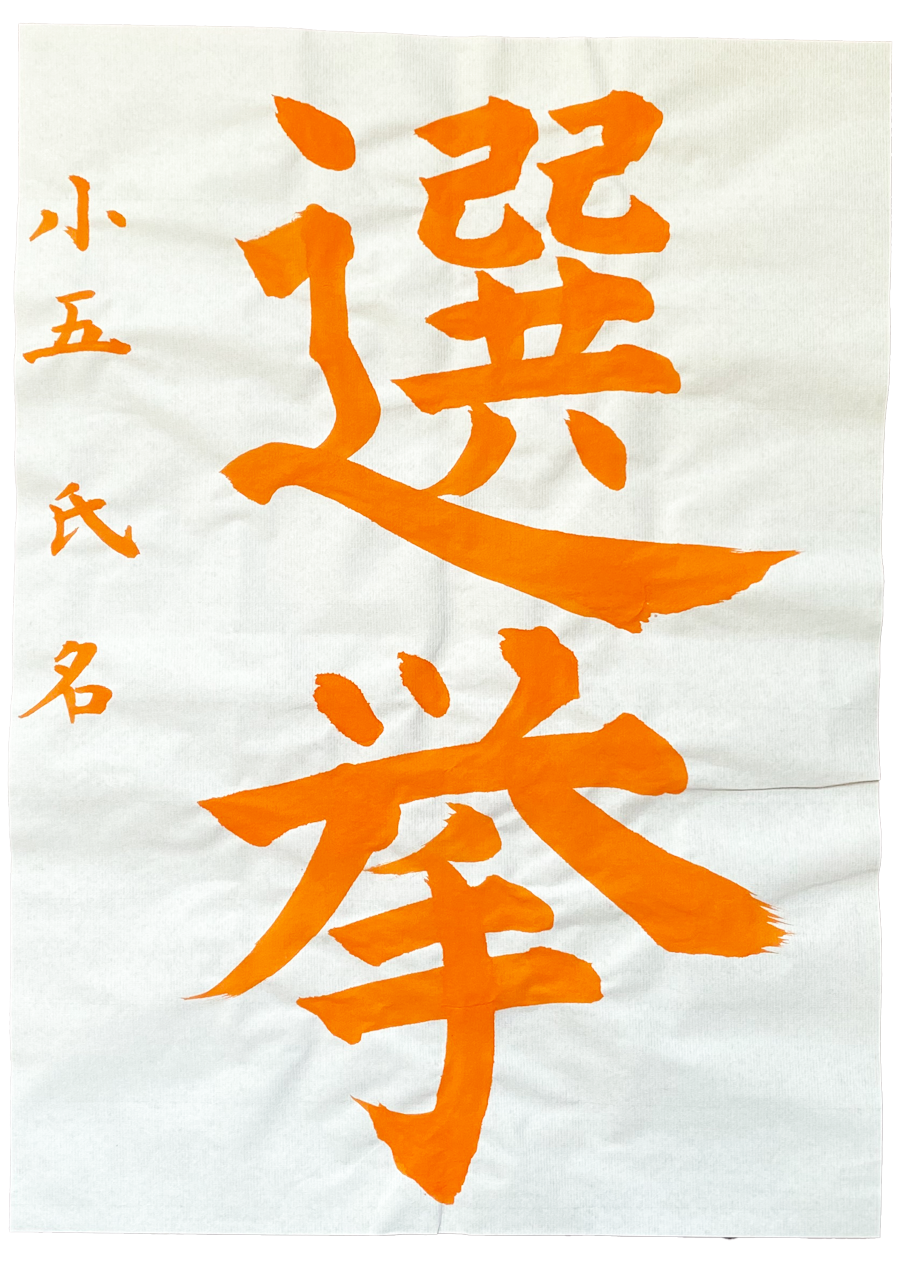 選挙
小五 氏名